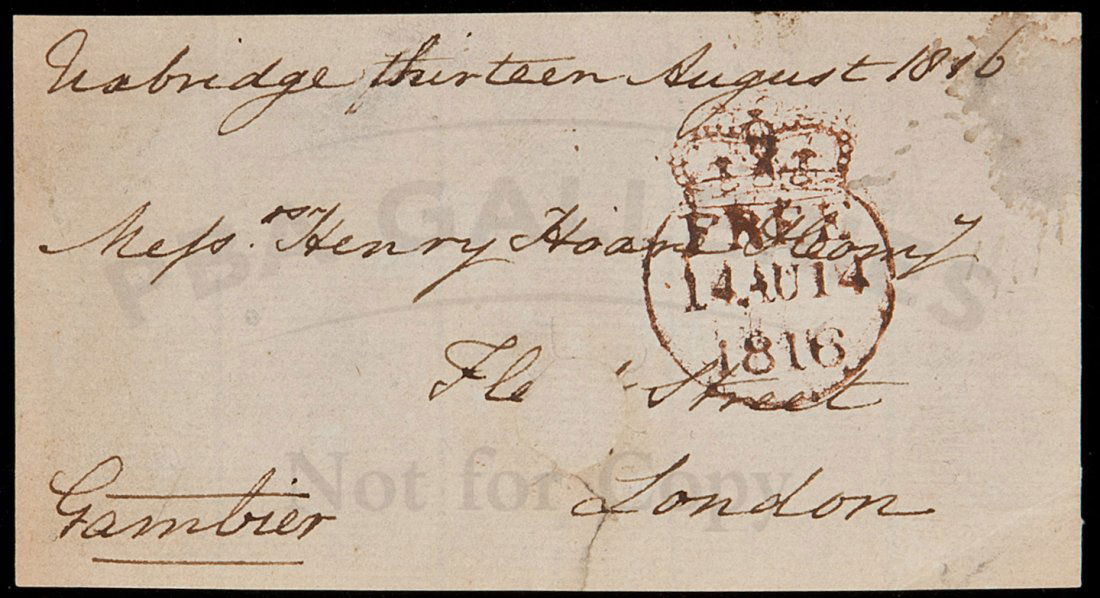 Uxbridge thirteen August 1816
Messrs. Henry Hoare & Compy
FREE
14 AU 14
1816
Fle Street
London
Gambier
PBA GALLERIES
Not for Copy